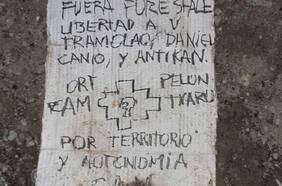 FUERA FORESTALE
LIBERTAD A V
TRAMOLAO, DANIEL
CANIO, Y ANTIKAN.
ORT PELON
CAM TXARU
POR TERRITORIO
Y AUTONOMIA